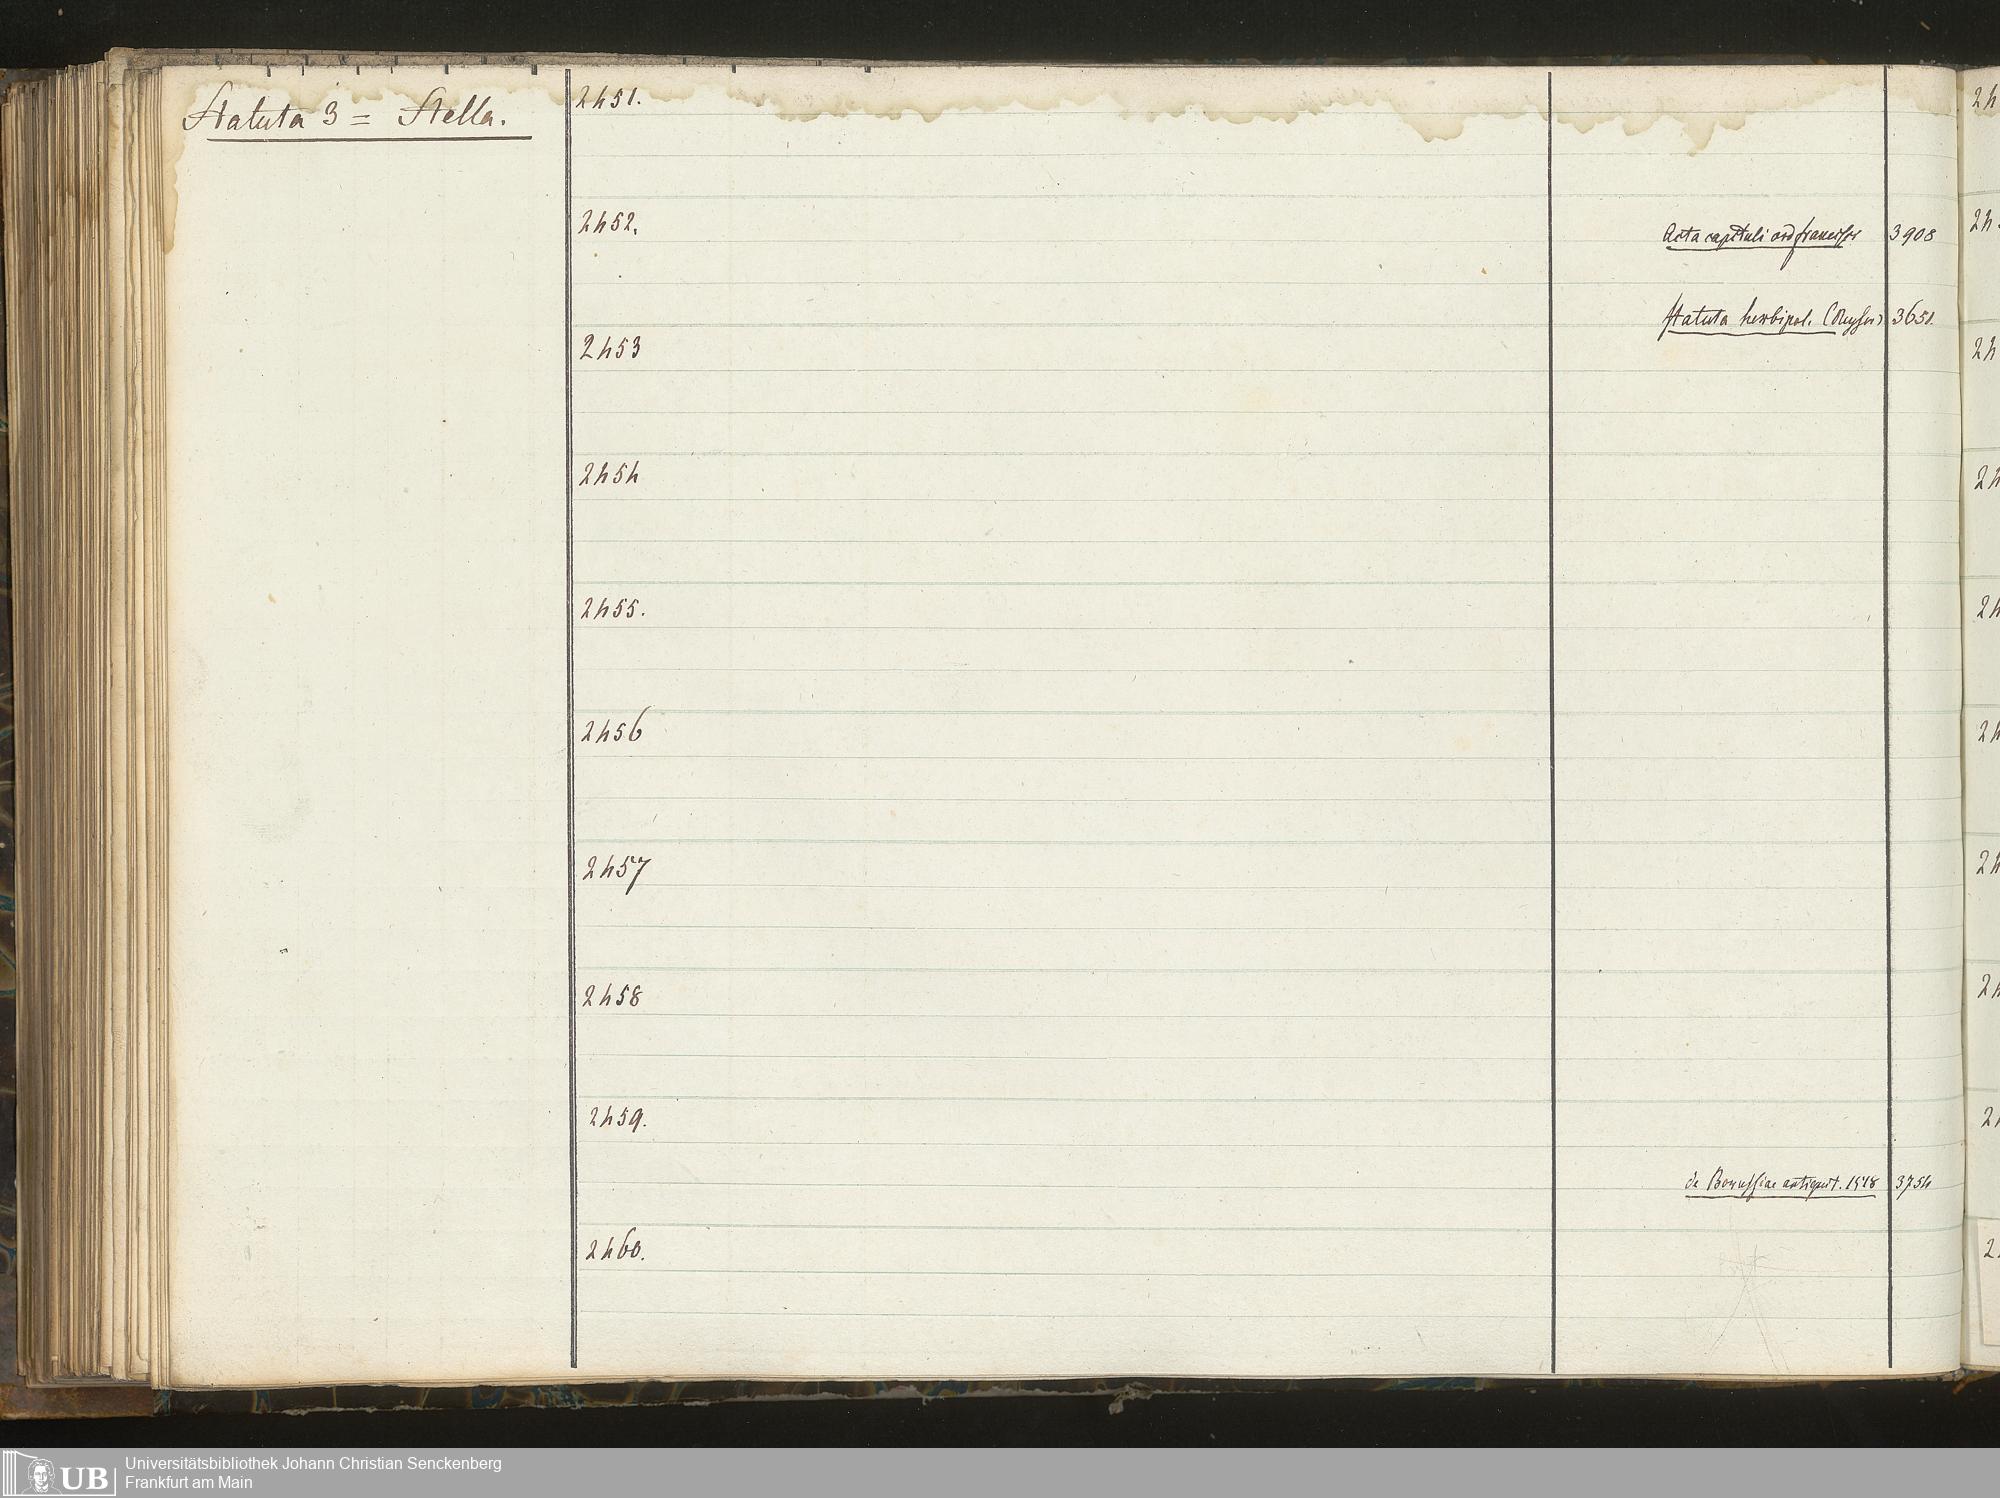 Statuta 3 = Stella.
2451.
2452.
Acta capituli ord francisc 3908
Statuta herbipol. (Reyser) 3651.
2453
2454
2455.
2456
2457
2458
2459.
de Borussiae antiquit. 1518 3754
2460.
24
24
24
24
24
24
24
24
2
2
UB
Universitätsbibliothek Johann Christian Senckenberg
Frankfurt am Main